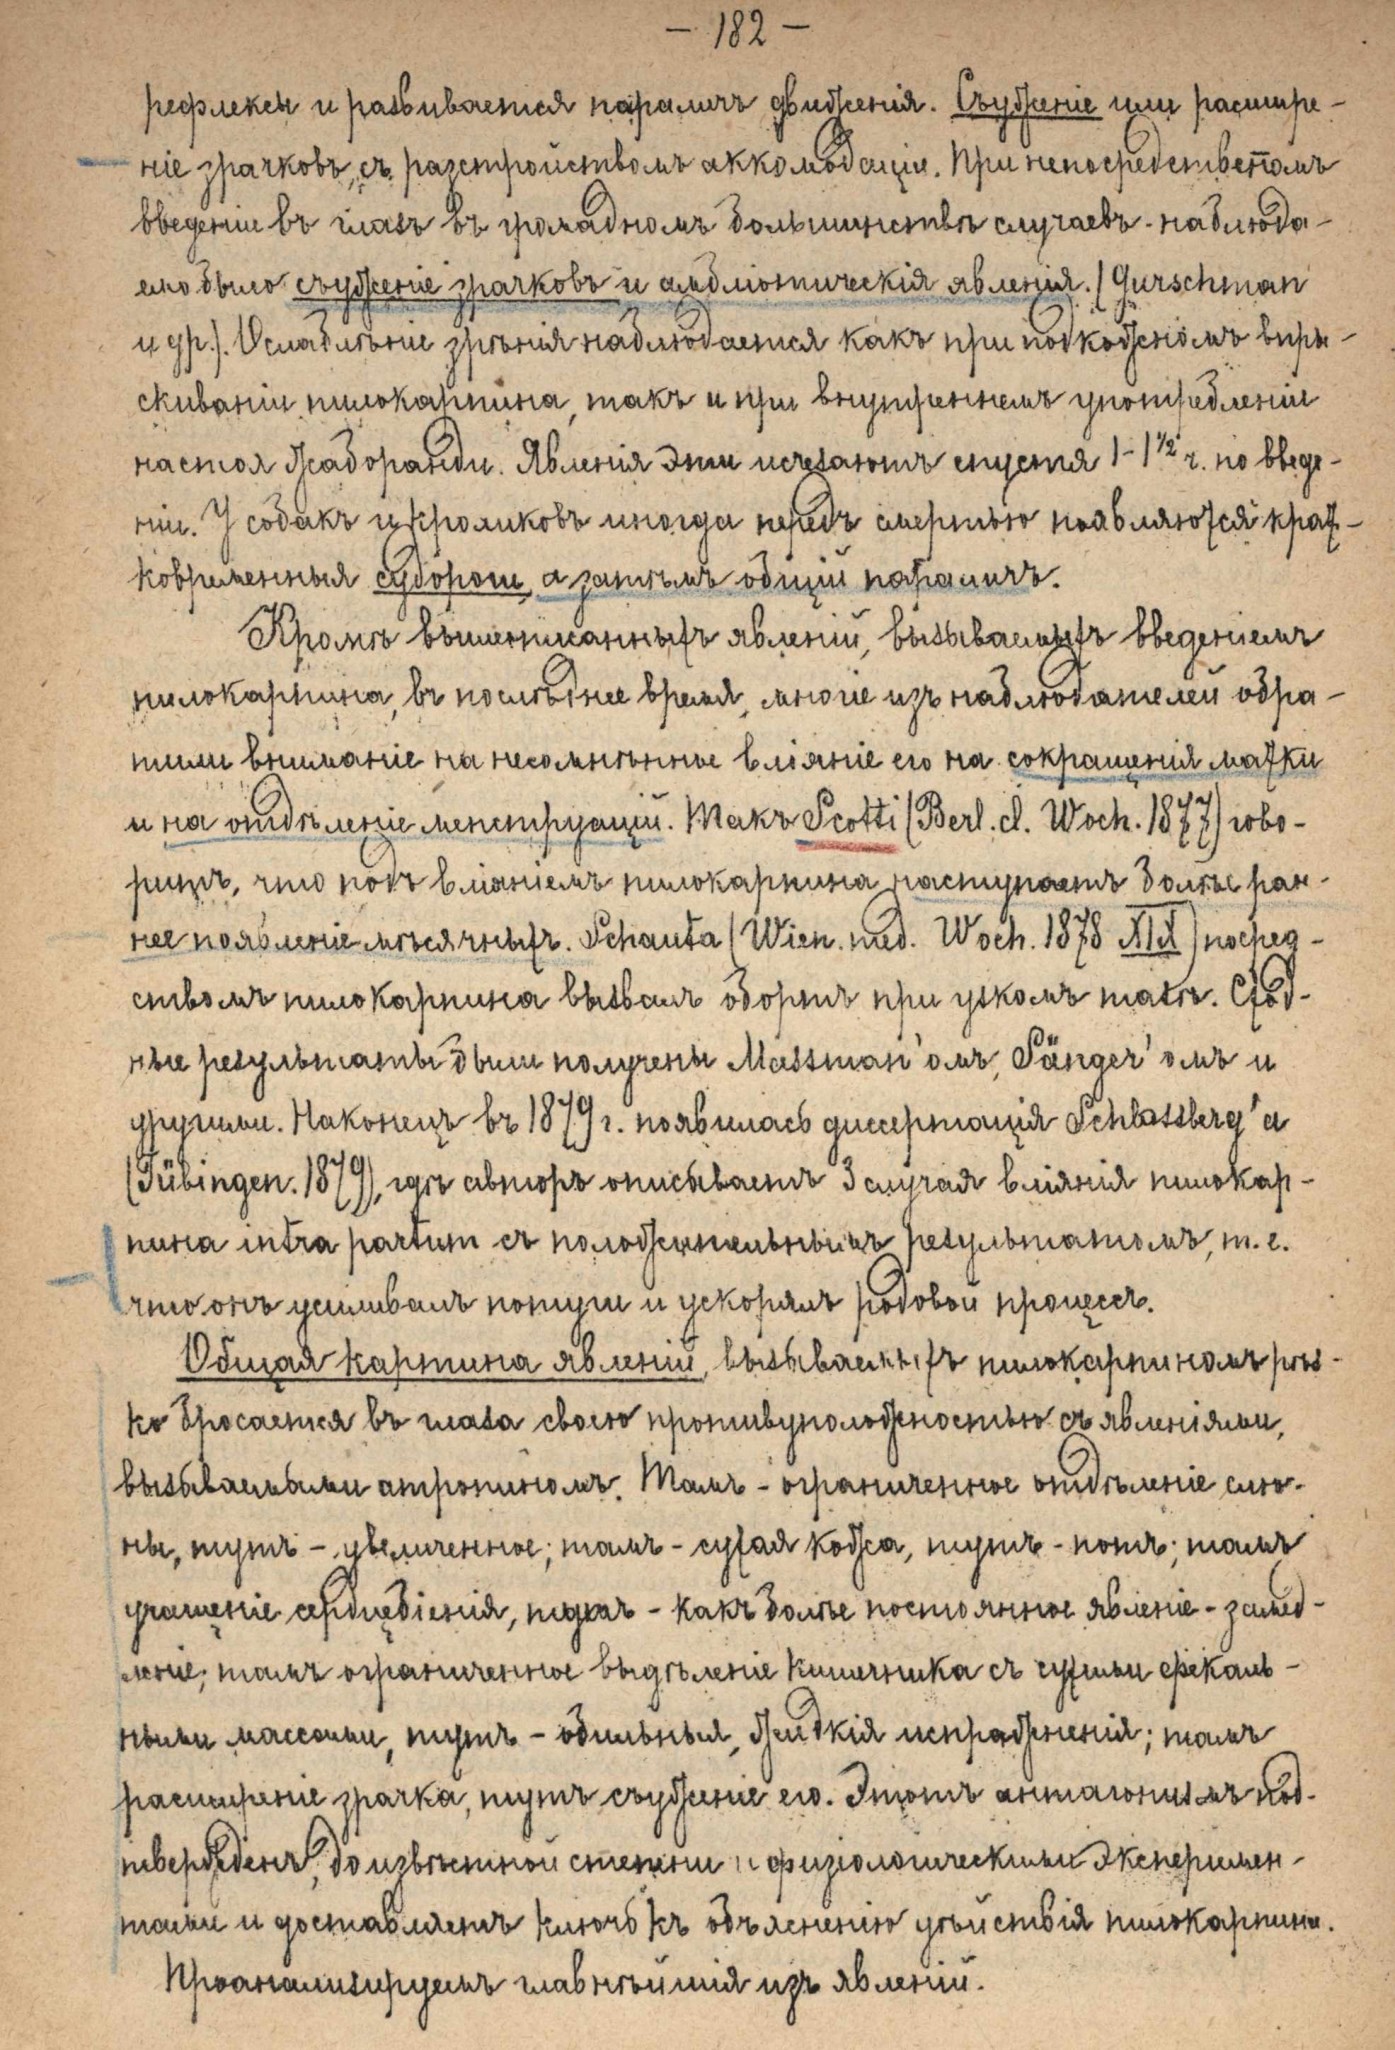 — 182 —
рефлексы и развивается параличъ движенія. Съуженіе или расшире-
ніе зрачковъ, съ разстройствомъ аккомодаціи. При непосредственомъ
введеніи въ глазъ въ громадномъ большинствѣ случаевъ наблюда-
емо было съуженіе зрачковъ и амбліопическія явленія. (Gurschman
и др.). Ослабленіе зрѣнія наблюдается какъ при подкожномъ впры-
скиваніи пилокарпина, такъ и при внутреннемъ употребленіи
настоя жаборанди. Явленія эти исчезаютъ спустя 1-1 1/2 ч. по введе-
ніи. У собакъ и кроликовъ иногда передъ смертью появляются крат-
ковременныя судороги, а затѣмъ общій параличъ.
Кромѣ вышеписанныхъ явленій, вызываемыхъ введеніемъ
пилокарпина, въ послѣднее время, многіе изъ наблюдателей обра-
тили вниманіе на несомнѣнное вліяніе его на сокращенія матки
и на отдѣленіе менструацій. Такъ Scotti (Berl. cl. Woch. 1877) гово-
ритъ, что подъ вліяніемъ пилокарпина наступаетъ болѣе ран-
нее появленіе мѣсячныхъ. Schauta (Wien. med. Woch. 1878 XIX) посред-
ствомъ пилокарпина вызвалъ абортъ при узкомъ тазѣ. Сход-
ные результаты были получены Massman'омъ, Sänger'омъ и
другими. Наконецъ въ 1879 г. появилась диссертація Schlossberg'а
(Tübingen. 1879), гдѣ авторъ описываетъ 3 случая вліянія пилокар-
пина intra partum съ положительнымъ результатомъ, т. е.
что онъ усиливалъ потуги и ускорялъ родовой процессъ.
Общая картина явленій, вызываемыхъ пилокарпиномъ рѣз-
ко бросается въ глаза своею противуположностью съ явленіями,
вызываемыми атропиномъ. Тамъ - ограниченное отдѣленіе слю-
ны, тутъ - увеличенное; тамъ - сухая кожа, тутъ - потъ; тамъ
учащеніе сердцебіенія, тутъ - какъ болѣе постоянное явленіе - замед-
леніе; тамъ ограниченное выдѣленіе кишечника съ сухими фекаль-
ными массами, тутъ - обильныя, жидкія испражненія; тамъ
расширеніе зрачка, тутъ съуженіе его. Этотъ антагонизмъ под-
твержденъ, до извѣстной степени и физіологическими эксперимен-
тами и доставляетъ ключъ къ объясненію дѣйствія пилокарпина.
Проанализируемъ главнѣйшія изъ явленій.